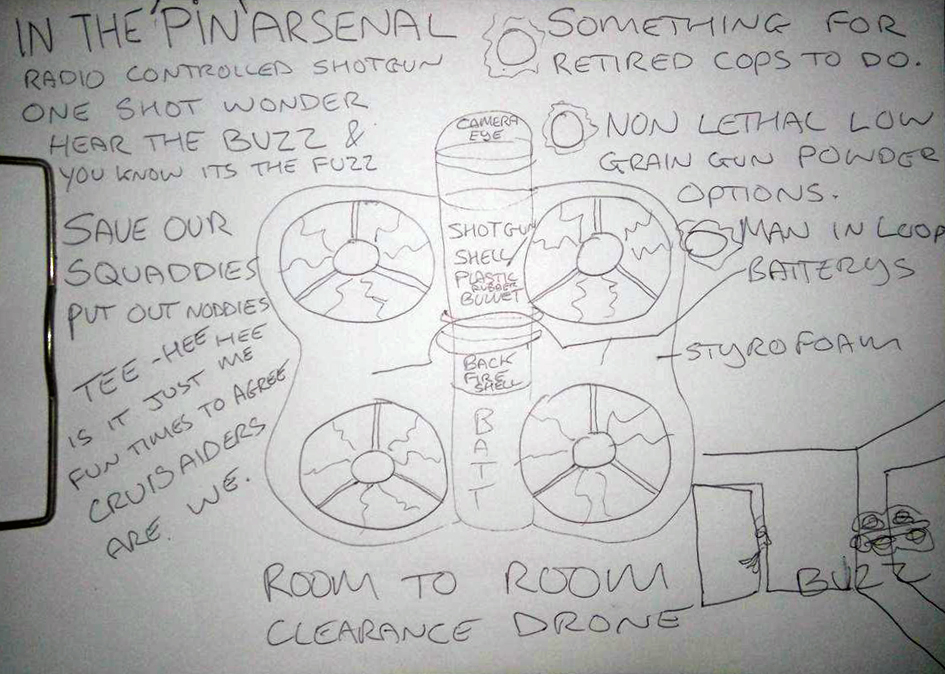 IN THE 'PIN' ARSENAL
RADIO CONTROLLED SHOTGUN
ONE SHOT WONDER
HEAR THE BUZZ &
YOU KNOW ITS THE FUZZ
SAVE OUR
SQUADDIES
PUT OUT NODDIES
TEE-HEE HEE
IS IT JUST ME
FUN TIMES TO AGREE
CRUISAIDERS
ARE WE.
SOMETHING FOR
RETIRED COPS TO DO.
NON LETHAL LOW
GRAIN GUN POWDER
OPTIONS.
MAN IN LOOP
BATTERYS
STYROFOAM
CAMERA
EYE
SHOTGUN
SHELL
PLASTIC
RUBBER
BULLET
BACK
FIRE
SHELL
BATT
BUZZ
ROOM TO ROOM
CLEARANCE DRONE